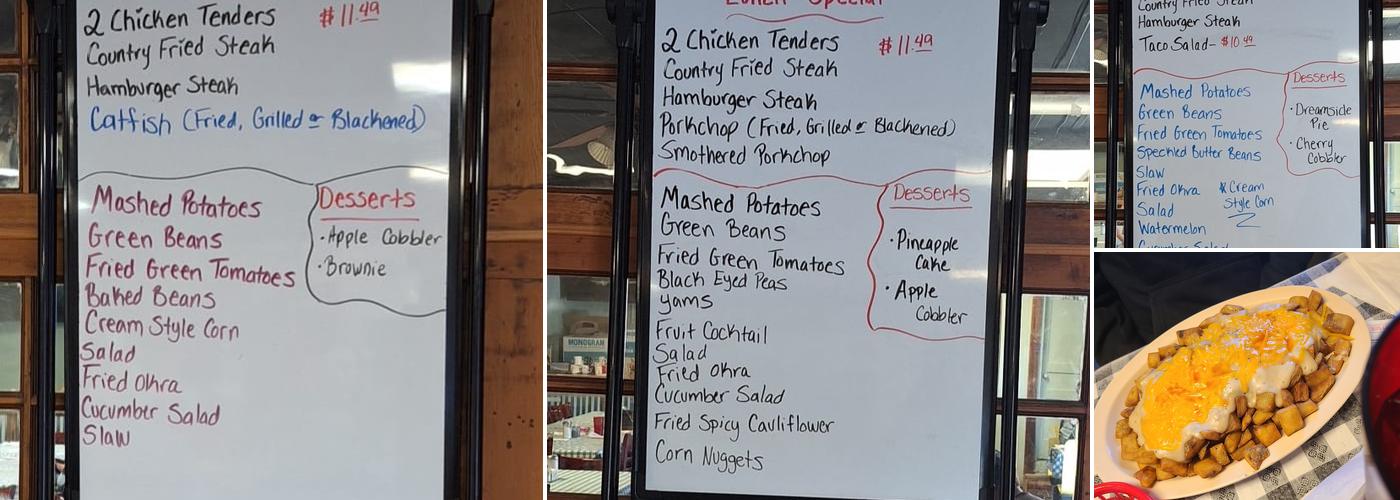 2 Chicken Tenders $11.49
Country Fried Steak
Hamburger Steak
Catfish (Fried, Grilled or Blackened)
Mashed Potatoes
Green Beans
Fried Green Tomatoes
Baked Beans
Cream Style Corn
Salad
Fried Okra
Cucumber Salad
Slaw
Desserts
·Apple Cobbler
·Brownie
Lunch Special
2 Chicken Tenders $11.49
Country Fried Steak
Hamburger Steak
Porkchop (Fried, Grilled or Blackened)
Smothered Porkchop
Mashed Potatoes
Green Beans
Fried Green Tomatoes
Black Eyed Peas
Yams
Fruit Cocktail
Salad
Fried Okra
Cucumber Salad
Fried Spicy Cauliflower
Corn Nuggets
Desserts
·Pineapple
Cake
·Apple
Cobbler
MONOGRAM
Country Fried Steak
Hamburger Steak
Taco Salad- $10.49
Mashed Potatoes
Green Beans
Fried Green Tomatoes
Speckled Butter Beans
Slaw
Fried Okra
Salad
Watermelon
Cucumber Salad
*Cream
Style Corn
Desserts
·Dreamside
Pie
·Cherry
Cobbler